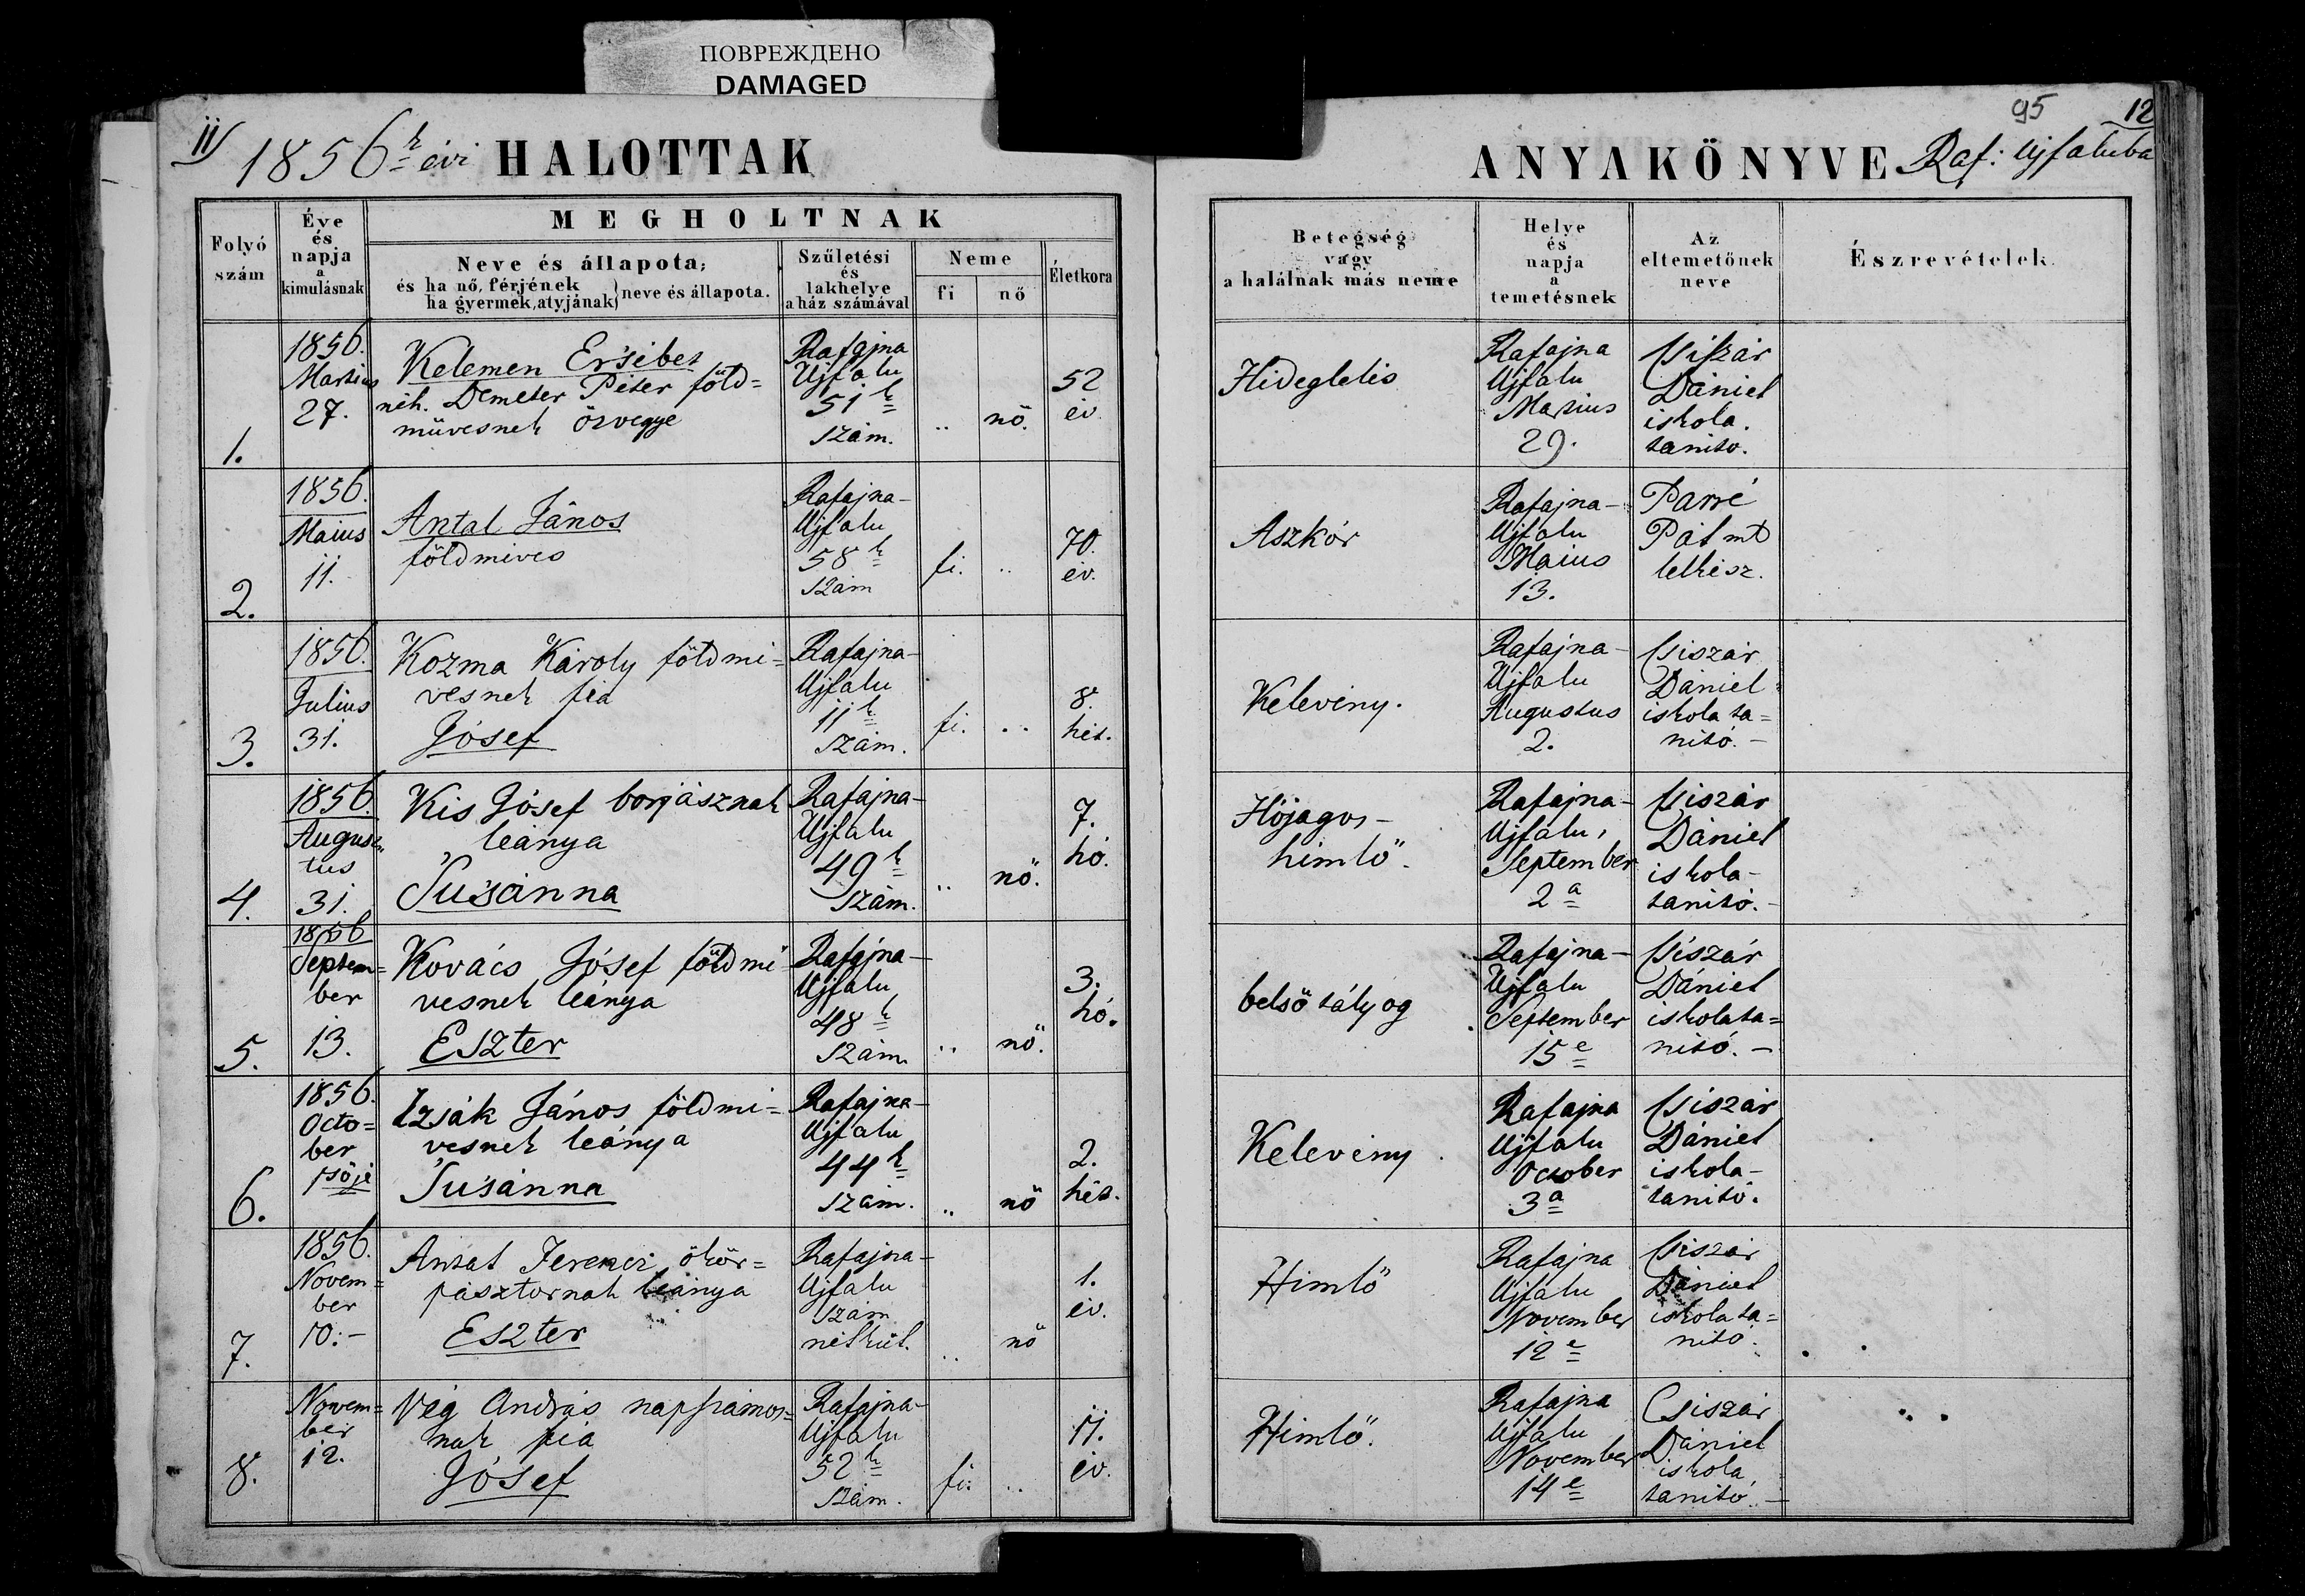 ПОВРЕЖДЕНО
DAMAGED
11/
1856k évi HALOTTAK
Folyó szám
Éve és napja a kimulásnak
MEGHOLTNAK
Neve és állapota;
és ha nő, férjének
ha gyermek, atyjának} neve és állapota.
Születési és lakhelye a ház számával
Neme
fi
nő
Életkora
1.
1856.
Martius
27.
Kelemen Ersébet
néh. Demeter Péter föld=
művesnek özvegye
Rafajna
Ujfalu
51k
szám.
..
nő.
52
év
2.
1856.
Maius
11.
Antal János
földmives
Rafajna-
Ujfalu
58k
szám
fi.
..
70.
év.
3.
1856.
Julius
31.
Kozma Károly földmi=
vesnek fia
Jósef
Rafajna-
Ujfalu
11k
szám.
fi.
..
8.
hét.
4.
1856.
Augus=
tus
31.
Kis Jósef borjásznak
leánya
Susánna
Rafajna-
Ujfalu
49k
szám.
..
nő.
7.
hó.
5.
1856
Septem=
ber
13.
Kovács Jósef földmi
vesnek leánya
Eszter
Rafajna-
Ujfalu
48k
szám
..
nő.
3.
hó.
6.
1856.
Octo=
ber
1sőjé
Izsák János földmi=
vesnek leánya
Susánna
Rafajna-
Ujfalu
44k
szám.
..
nő
2.
hét.
7.
1856.
Novem=
ber
10.-
Antal Ferencz ökör=
pásztornak leánya
Eszter
Rafajna-
Ujfalu
szám
nélkül.
..
nő
1.
év.
8.
Novem=
ber
12.
Vég András napszámos=
nak fia
Jósef
Rafajna-
Ujfalu
52k
szám.
fi.
..
11.
év.
95
12
ANYAKÖNYVE Raf: Ujfaluba
Betegség vagy a halálnak más neme
Helye és napja a temetésnek
Az eltemetőnek neve
Észrevételek.
Hideglelés
Rafajna
Ujfalu
Martius
29.
Csiszár
Dániel
iskola.
tanito.
Aszkór
Rafajna-
Ujfalu
Maius
13.
Pál
lelkész.
Kelevény.
Rafajna-
Ujfalu
Augustus
2.
Csiszár
Dániel
iskola ta=
nitó.-
Hójagos-
himlő.
Rafajna-
Ujfalu,
September
2a
Csiszár
Dániel
iskola-
tanitó.-
belső tályog
Rafajna-
Ujfalu
September
15e
Csiszár
Dániel
iskolata=
nitó.-
Kelevény
Rafajna
Ujfalu
October
3a
Csiszár
Dániel
iskola-
tanitó.
Himlő
Rafajna
Ujfalu
November
12e
Csiszár
Dániel
iskola ta=
nitó.
Himlő.
Rafajna
Ujfalu
November
14e
Csiszár
Dániel
iskola,
tanitó.-